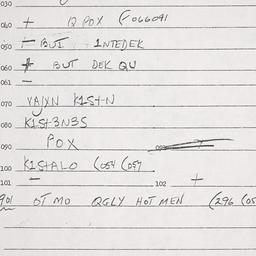 030
040 + Q POX (F066041
050 BUT INTEDEK
060 + BUT DEK QU
061 −
070 VAJXN K1ST-N
080 K1ST-3N3S
090 POX
100 K1STALO (054 (057
101 − 102 +
901 OT MO QGLY HOTMEN (296 (05